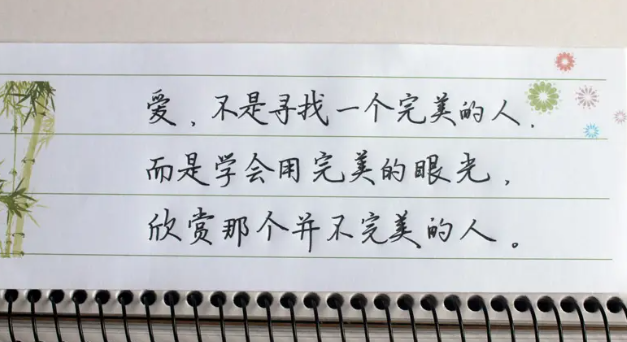 爱、不是寻找一个完美的人，
而是学会用完美的眼光，
欣赏那个并不完美的人。